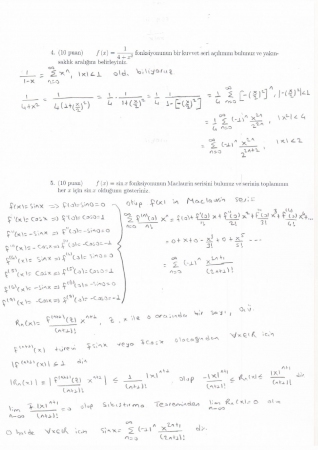 4. (10 puan) f(x) = 1/(4+x²) fonksiyonunun bir kuvvet seri açılımını bulunuz ve yakın-
saklık aralığını belirleyiniz.
1/(1-x) = ∑_{n=0}^∞ xⁿ, |x|<1 old. biliyoruz
1/(4+x²) = 1/(4(1+(x/2)²)) = 1/4 · 1/(1+(x/2)²) = 1/4 · 1/(1-[-(x/2)²]) = 1/4 ∑_{n=0}^∞ [-(x/2)²]ⁿ, |-(x/2)²|<1
= 1/4 ∑_{n=0}^∞ (-1)ⁿ x^{2n}/2^{2n}, |x²|<4
= ∑_{n=0}^∞ (-1)ⁿ x^{2n}/2^{2n+2}, |x|<2
5. (10 puan) f(x) = sin x fonksiyonunun Maclaurin serisini bulunuz ve serinin toplamının
her x için sin x olduğunu gösteriniz.
f(x)=sinx ⇒ f(0)=sin0=0 olup f(x) in Maclaurin serisi
f'(x)=cosx ⇒ f'(0)=cos0=1
f''(x)=-sinx ⇒ f''(0)=-sin0=0
f'''(x)=-cosx ⇒ f'''(0)=-cos0=-1
= 0+x+0-x³/3!+0+x⁵/5! ...
= ∑_{n=0}^∞ (-1)ⁿ x^{2n+1}/(2n+1)!
Rn(x) = f^{(n+1)}(z)/(n+1)! x^{n+1}, z, x ile 0 arasında bir sayı,
f^{(n+1)}(x) türevi ∓sinx veya ∓cosx olacağından ∀x∈ℝ için
|f^{(n+1)}(x)| ≤ 1 dir
|Rn(x)| = |f^{(n+1)}(z)/(n+1)! x^{n+1}| ≤ |x|^{n+1}/(n+1)! olup -|x|^{n+1}/(n+1)! ≤ Rn(x) ≤ |x|^{n+1}/(n+1)! dir
lim_{n→∞} ∓|x|^{n+1}/(n+1)! = 0 olup Sıkıştırma Teoreminden lim_{n→∞} Rn(x)=0 olur
O halde ∀x∈ℝ için sinx = ∑_{n=0}^∞ (-1)ⁿ x^{2n+1}/(2n+1)! dir.